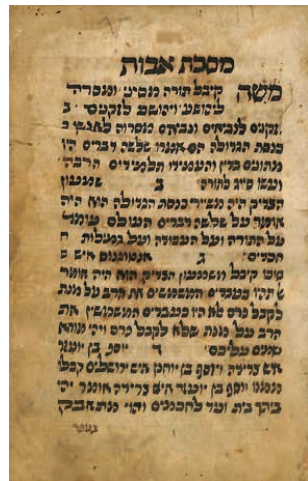 מסכת אבות
משה קיבל תורה מסיני ומסרה
ליהושע ויהושע לזקנים
זקנים לנביאים ונביאים מסרוה לאנשי
כנסת הגדולה הם אמרו שלשה דברים הוו
מתונים בדין והעמידו תלמידים הרבה
ועשו סייג לתורה ב שמעון
הצדיק היה משיירי כנסת הגדולה הוא היה
אומר על שלשה דברים העולם עומד
על התורה ועל העבודה ועל גמילות ח
חסדים ג אנטיגנוס איש ס
סוכו קיבל משמעון הצדיק הוא היה אומר
תהיו כעבדים המשמשים את הרב על מנת
לקבל פרס אלא היו כעבדים המשמשין את
הרב על מנת שלא לקבל פרס ויהי מורא
שמים עליכם ד יוסף בן יועזר
איש צרידה ויוסף בן יוחנן איש ירושלים קבלו
יוסף בן יועזר איש צרידה אומר יהי
ביתך בית ועד לחכמים והוי מתאבק
בעפר